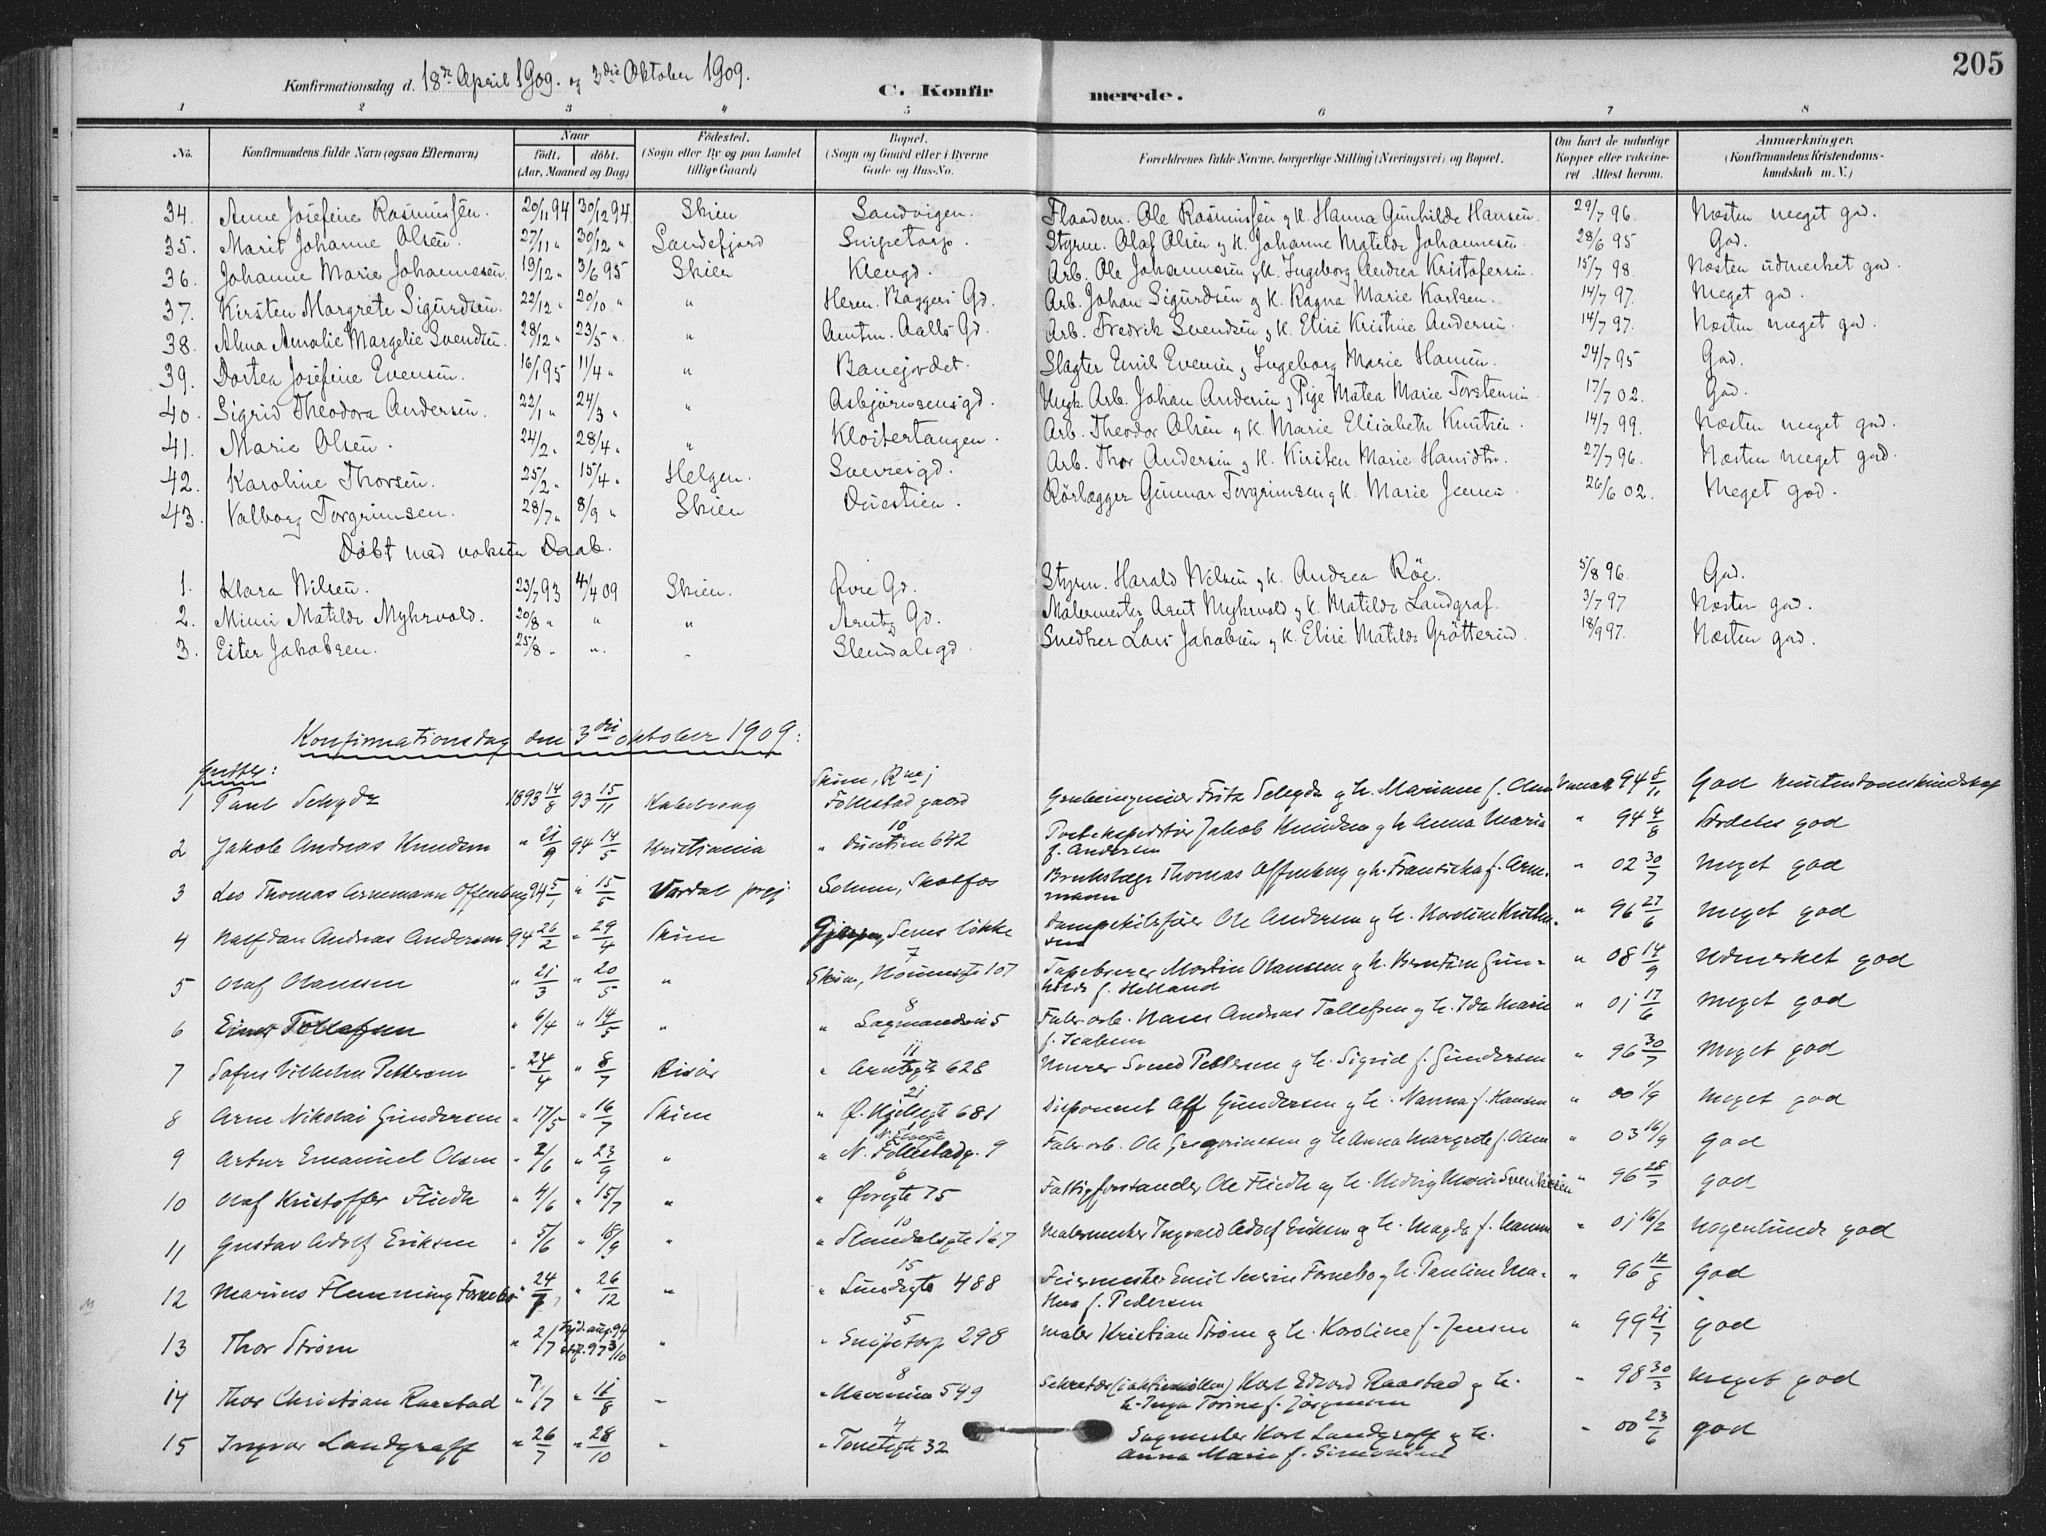 205
Konfirmationsdag d. 18de April 1909. og 3die Oktober 1909.
C. Konfirmerede.
1 2 3 4 5 6 7 8
No. Konfirmandens fulde Navn (ogsaa Efternavn) Naar født. døbt. (Aar, Maaned og Dag) Fødested. (Sogn eller By og paa Landet tillige Gaard) Bopæl. (Sogn og Gaard eller i Byerne Gade og Hus-No. Forældrenes fulde Navne, borgerlige Stilling (Næringsvei) og Bopæl. Om havt de naturlige Kopper eller vakcineret Attest herom. Anmærkninger. (Konfirmandens Kristendomskundskab m. V.)
34. Anne Josefine Rasmussen. 20/11 94 30/12 94. Skien Sandvigen. Flaadem. Ole Rasmussen og H. Hanna Gunhilde Hansen. 29/7 96. Næsten meget god.
35. Marit Johanne Olsen. 27/11 " 30/12 " Sandefjord Snipetorp. Styrm. Olaf Olsen og H. Johanne Matilde Johannesen. 28/6 95 God.
36. Johanne Marie Johannesen. 19/12 " 3/6 95 Skien Klengd. Arb. Ole Johannesen og H. Ingeborg Andrea Kristofersen. 15/7 98. Næsten udmerket god.
37. Kirsten Margrete Sigurdsen. 22/12 " 20/10 " " Herm. Baggers Gd. Arb. Johan Sigurdsen og H. Ragna Marie Karlsen. 14/7 97. Meget god.
38. Alma Amalie Margelie Svendsen. 28/12 " 23/5 " " Amtm. Aalls Gd. Arb. Fredrik Svendsen og H. Elise Kristine Andersen. 14/7 97. Næsten meget god.
39. Dortea Josefine Evensen. 16/1 95 11/4 " " Banejordet. Slagter Emil Evensen og Ingeborg Marie Hansen. 24/7 95 God.
40. Sigrid Theodora Andersen. 22/1 " 24/3 " " Asbjørnsensgd. Ungk. Arb. Johan Andersen og Pige Matea Marie Torstensen 17/7 02. God.
41. Marie Olsen. 24/2 " 28/4 " " Klostertangen. Arb. Theodor Olsen og H. Marie Elisabeth Knutsen. 14/7 99. Næsten meget god.
42. Karoline Thorsen. 25/2 " 15/4 " Helgen. Sverresgd. Arb. Thor Andersen og H. Kirsten Marie Hansdtr. 27/7 96. Næsten meget god.
43. Valborg Torgrimsen. 28/7 " 8/9 " Skien Duestien. Rørlægger Gunnar Torgrimsen og H. Marie Jensen. 26/6 02. Meget god.
Døbt med voksen Daab.
1. Klara Nilsen. 23/7 93 4/4 09 Skien. Øvre Gd. Styrm. Harald Nilsen og H. Andrea Röe. 5/8 96. God.
2. Mimi Matilde Myhrvold. 20/8 " " " Arntz Gd. Malermester Arnt Myhrvold og H. Matilde Landgraf. 3/7 97 Næsten god.
3. Ester Jakobsen. 25/8 " " " Slemdalsgd. Snedker Lars Jakobsen og H. Elise Matilde Grötterud. 18/9 97. Næsten god.
Konfirmationsdag den 3die oktober 1909:
Gutter:
1 Paul 1893 14/8 93 15/11 Skien, Follestad gaard Grubeingeniør Fritz og h. Mariane f. Olsen Vaccin. 94 8/11 God kristendomskundskap
2 Jakob Andreas Knudsen " 21/9 94 14/5 Kristiania " Duestien 10 642 Postekspeditør Jakob Knudsen og h. Anna Marie f. Andersen " 94 4/8 Særdeles god
3 Leo Thomas Arnemann Offenberg 94 5/1 " 15/5 Solum, Skotfos Thomas Offenberg og h. Franziska f. Arnemann " 02 30/7 Meget god
4 Halfdan Andreas Andersen 94 26/2 " 29/4 Skien Gjerpen, Løkke Dampskibsfører Ole Andersen og h. " 96 27/6 Meget god
5 Olaf Olaussen " 21/3 " 20/5 " Skien, 7 107 Martin Olaussen og h. Berntine f. Helland " 08 14/9 Udmerket god
6 Einar Tollefsen " 6/4 " 14/5 " " 8 5 Fabr. arb. Hans Andreas Tollefsen og h. Ida Marie f. " 01 17/6 Meget god
7 Sofus Vilhelm Pettersen " 24/4 " 8/7 Risør " 11 Arntzgt 628 Murer Svend Pettersen og h. Sigrid f. Gundersen " 96 30/7 Meget god
8 Arne Nikolai Gundersen " 17/5 " 16/7 Skien " 21 681 Disponent Alf Gundersen og h. Nanna f. Hansen " 00 1/9 Meget god
9 Artur Emanuel Olsen " 2/6 " 23/9 " " N. Follestadg. 9 Fabr. arb. Ole Gregoriussen og h. Anna Margrete f. Olsen " 03 16/9 god
10 Olaf Kristoffer Fliedh " 4/6 " 15/7 " " 6 Øvregt 75 Fattigforstander Ole Fliedh og h. Hedvig Marie " 96 28/7 god
11 Gustav Adolf Eriksen " 5/6 " 18/9 " " 10 Slemdalsgt 167 Malermester Ingvald Adolf Eriksen og h. Magda f. Hansen " 01 16/2 Nogenlunde god
12 Marius Flemming Fornebo " 24/6 " 26/12 " " 15 Sundegt 488 Feiermester Emil Severin Fornebo og h. Pauline Mathea f. Pedersen " 96 12/8 god
13 Thor Strøm " 2/7 aug. 94 97 3/10 " " 5 Snipetorp 298 Maler Kristian Strøm og h. Karoline f. Jensen " 99 21/7 god
14 Thor Christian Raastad " 7/7 " 11/8 " " 8 549 Sekretær Karl Edvard Raastad og h. Inga Torine f. Jørgensen " 98 30/3 Meget god
15 Ingvar Landgraff " 26/7 " 28/10 " " 4 32 Sagmester Karl Landgraff og h. Anna Marie f. Simonsen " 00 23/6 god